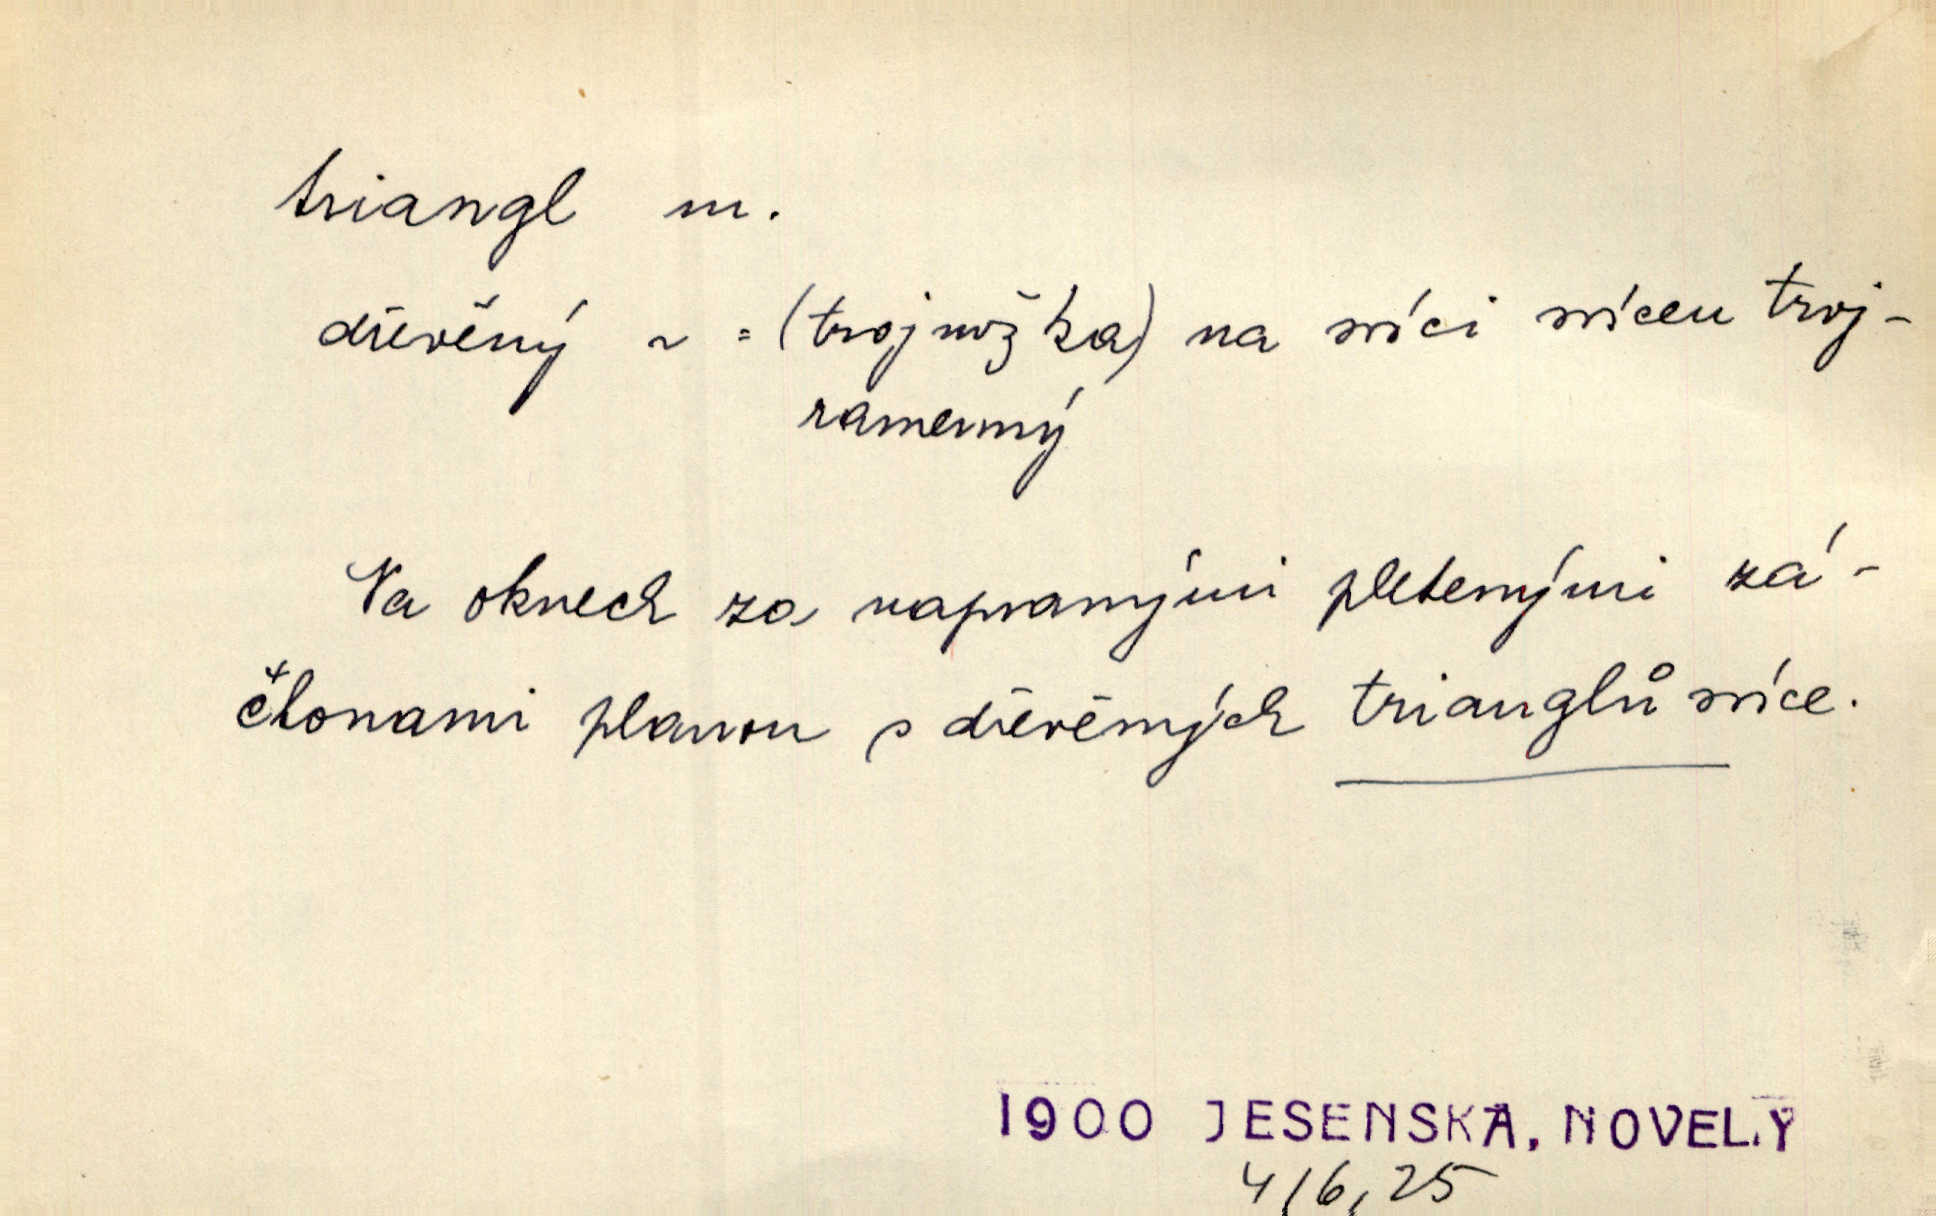 triangl m.
dřevěný ~ = (trojnožka) na svíci svícen troj-
ramenný
Na oknech za vypranými pletenými zá-
clonami planou s dřevěných trianglů svíce.
1900 JESENSKÁ, NOVELY
4/6, 25